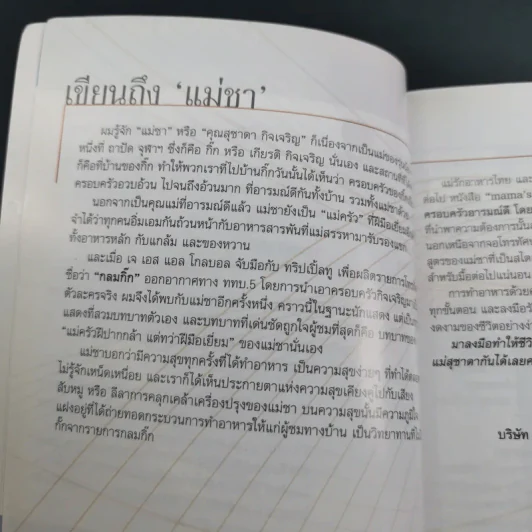 เขียนถึง 'แม่ชา'
ผมรู้จัก "แม่ชา" หรือ "คุณสุชาดา กิจเจริญ" ก็เนื่องจากเป็นแม่ของ
หนึ่งที่ ถาปัด จุฬาฯ ซึ่งก็คือ กิ๊ก หรือ เกียรติ กิจเจริญ นั่นเอง และสถานที่
ก็คือที่บ้านของกิ๊ก ทำให้พวกเราที่ไปบ้านกิ๊กวันนั้นได้เห็นว่า ครอบครัวของกิ๊ก
ครอบครัวอวบอ้วน ไปจนถึงอ้วนมาก ที่อารมณ์ดีกันทั้งบ้าน รวมทั้งแม่ชาด้วย
นอกจากเป็นคุณแม่ที่อารมณ์ดีแล้ว แม่ชายังเป็น "แม่ครัว" ที่ฝีมือเยี่ยม
จำได้ว่าทุกคนอิ่มเอมกันถ้วนหน้ากับอาหารสารพันที่แม่สรรหามารับรองแขก
ทั้งอาหารหลัก กับแกล้ม และของหวาน
และเมื่อ เจ เอส แอล โกลบอล จับมือกับ ทริปเปิ้ลทู เพื่อผลิตรายการ
ชื่อว่า "กลมกิ๊ก" ออกอากาศทาง ททบ.5 โดยการนำเอาครอบครัวกิจเจริญ
ตัวละครจริง ผมจึงได้พบกับแม่ชาอีกครั้งหนึ่ง คราวนี้ในฐานะนักแสดง แต่เป็น
แสดงที่สวมบทบาทตัวเอง และบทบาทที่เด่นชัดถูกใจผู้ชมที่สุดก็คือ บทบาทของ
"แม่ครัวฝีปากกล้า แต่ทว่าฝีมือเยี่ยม" ของแม่ชานั่นเอง
แม่ชาบอกว่ามีความสุขทุกครั้งที่ได้ทำอาหาร เป็นความสุขง่ายๆ ที่ทำได้
ไม่รู้จักเหน็ดเหนื่อย และเราก็ได้เห็นประกายตาแห่งความสุขเคียงคู่ไปกับเสียง
สับหมู หรือ ลีลาการคลุกเคล้าเครื่องปรุงของแม่ชา บนความสุขนั้นมีความภูมิใจ
แฝงอยู่ที่ได้ถ่ายทอดกระบวนการทำอาหารให้แก่ผู้ชมทางบ้าน เป็นวิทยาทาน
กิ๊กจากรายการกลมกิ๊ก
แม่รักอาหารไทย และ
ต่อไป หนังสือ "mama's
ครอบครัวอารมณ์ดี โดย
ที่นำพาความต้องการ
นอกเหนือจากจอโทรทัศน์
สูตรของแม่ชาที่เป็น
สำหรับมื้อต่อไปแน่นอน
การทำอาหารด้วย
ทุกขั้นตอน และลงมือ
งดงามของชีวิตอย่าง
มาลงมือทำให้ชีวิ
แม่สุชาดากันได้เลยค
บริษัท